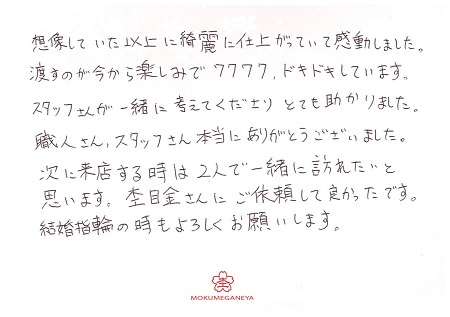 想像していた以上に綺麗に仕上がっていて感動しました。
渡すのが今から楽しみでワクワク,ドキドキしています。
スタッフさんが一緒に考えてくださりとても助かりました。
職人さん,スタッフさん本当にありがとうございました。
次に来店する時は2人で一緒に訪れたいと
思います。杢目金さんにご依頼して良かったです。
結婚指輪の時もよろしくお願いします。
MOKUMEGANEYA